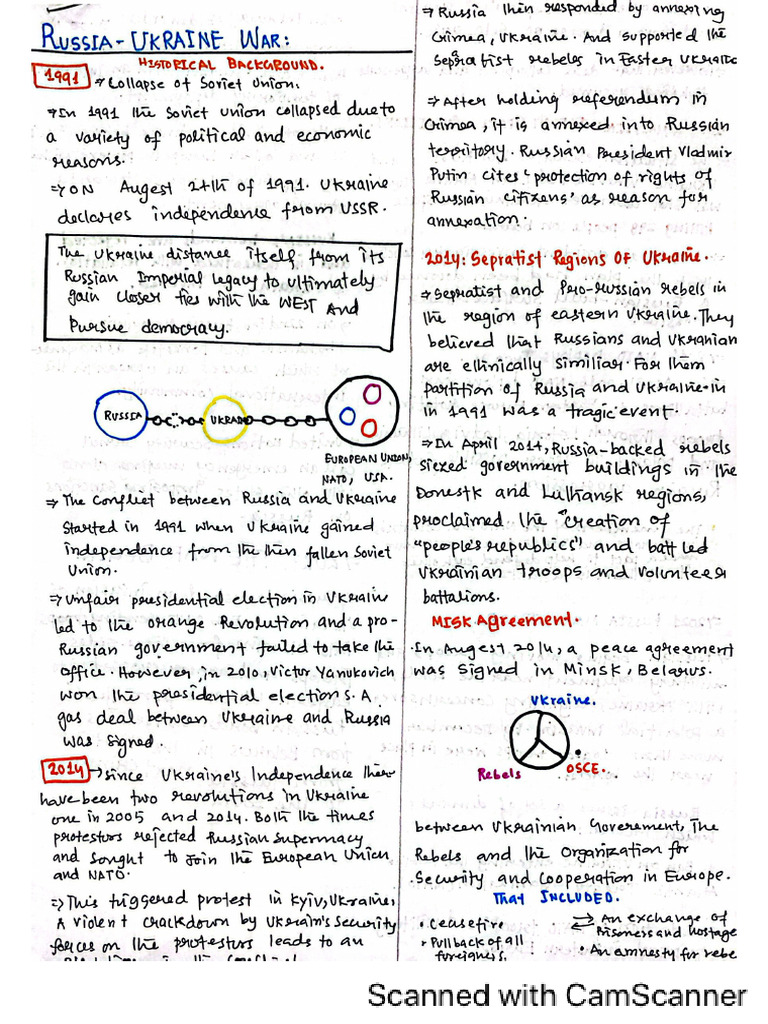 RUSSIA - UKRAINE WAR:
HISTORICAL BACKGROUND.
1991 → Collapse of Soviet Union.
⇒ In 1991 the Soviet union collapsed due to
a variety of political and economic
reasons.
⇒ ON Augest 24th of 1991. Ukraine
declares independence from USSR.
The Ukraine distance itself from its
Russian Imperial legacy to ultimately
gain closer ties with the WEST AND
Pursue democracy.
RUSSIA
UKRAI
EUROPEAN UNION,
NATO, USA.
⇒ The Conflict between Russia and Ukraine
Started in 1991 when Ukraine gained
independence from the then fallen Soviet
Union.
⇒ Unfair presidential election in Ukrain
led to the orange Revolution and a pro-
Russian government failed to take the
office. However, in 2010, Victor Yanukovich
won the presidential elections. A
gas deal between Ukraine and Russia
was signed.
2014 → Since Ukraine's Independence ther
have been two revolutions in Ukraine
one in 2005 and 2014. Both the times
protestors rejected Russian Supermacy
and sought to join the European Union
and NATO.
⇒ This triggered protest in Kyiv, Ukraine,
A violent crackdown by Ukrain's Security
forces on the protestors leads to an
⇒ Russia then responded by annexing
Crimea, Ukraine. And supported the
Sepratist rebeles in Easter Ukraine
⇒ After holding referendum in
Crimea, it is annexed into Russian
territory. Russian President Vladmir
Putin cites 'protection of rights of
Russian citizens' as reason for
annexation.
2014: Sepratist Regions Of Ukraine.
⇒ Sepratist and Pro-Russian rebels in
the region of eastern Ukraine. They
believed that Russians and Ukranian
are ethnically similiar. For them
partition of Russia and Ukraine in
in 1991 was a tragic event.
⇒ In April 2014, Russia-backed rebels
siezed government buildings in the
Donestk and Luhansk regions,
proclaimed the "creation of
"people's republics" and battled
Ukrainian troops and volunteer
battalions.
MISK Agreement.
In Augest 2014, a peace agreement
was signed in Minsk, Belarus.
Ukraine.
Rebels
OSCE.
between Ukrainian Goverement, The
Rebels and the Organization for
Security and Cooperation in Europe.
THAT INCLUDED.
• Ceasefire
• Pull back of all
foreigners.
⇄ An exchange of
Prisoners and hostage
• An amnesty for rebe
Scanned with CamScanner